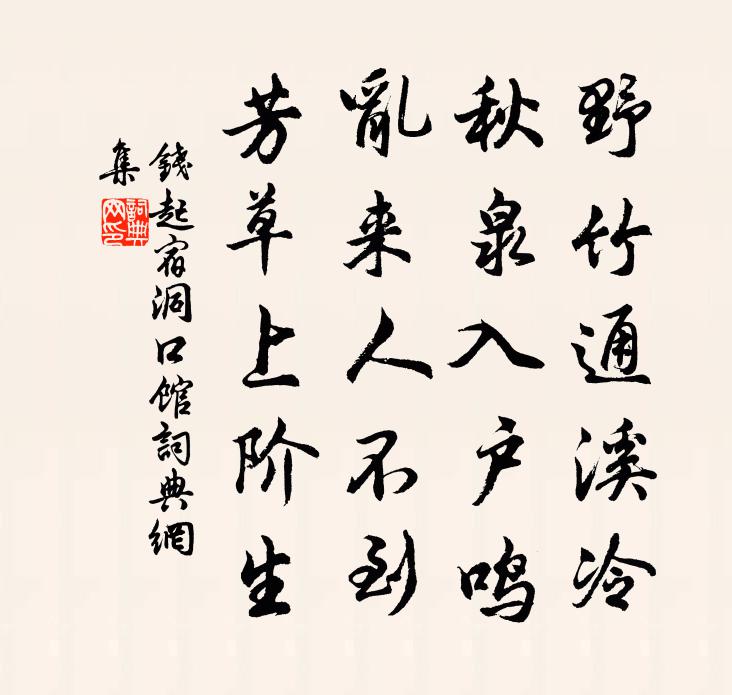 野竹通溪冷
秋泉入户鸣
亂来人不到
芳草上阶生
錢起宿洞口馆詞典網
集
詞典
网印